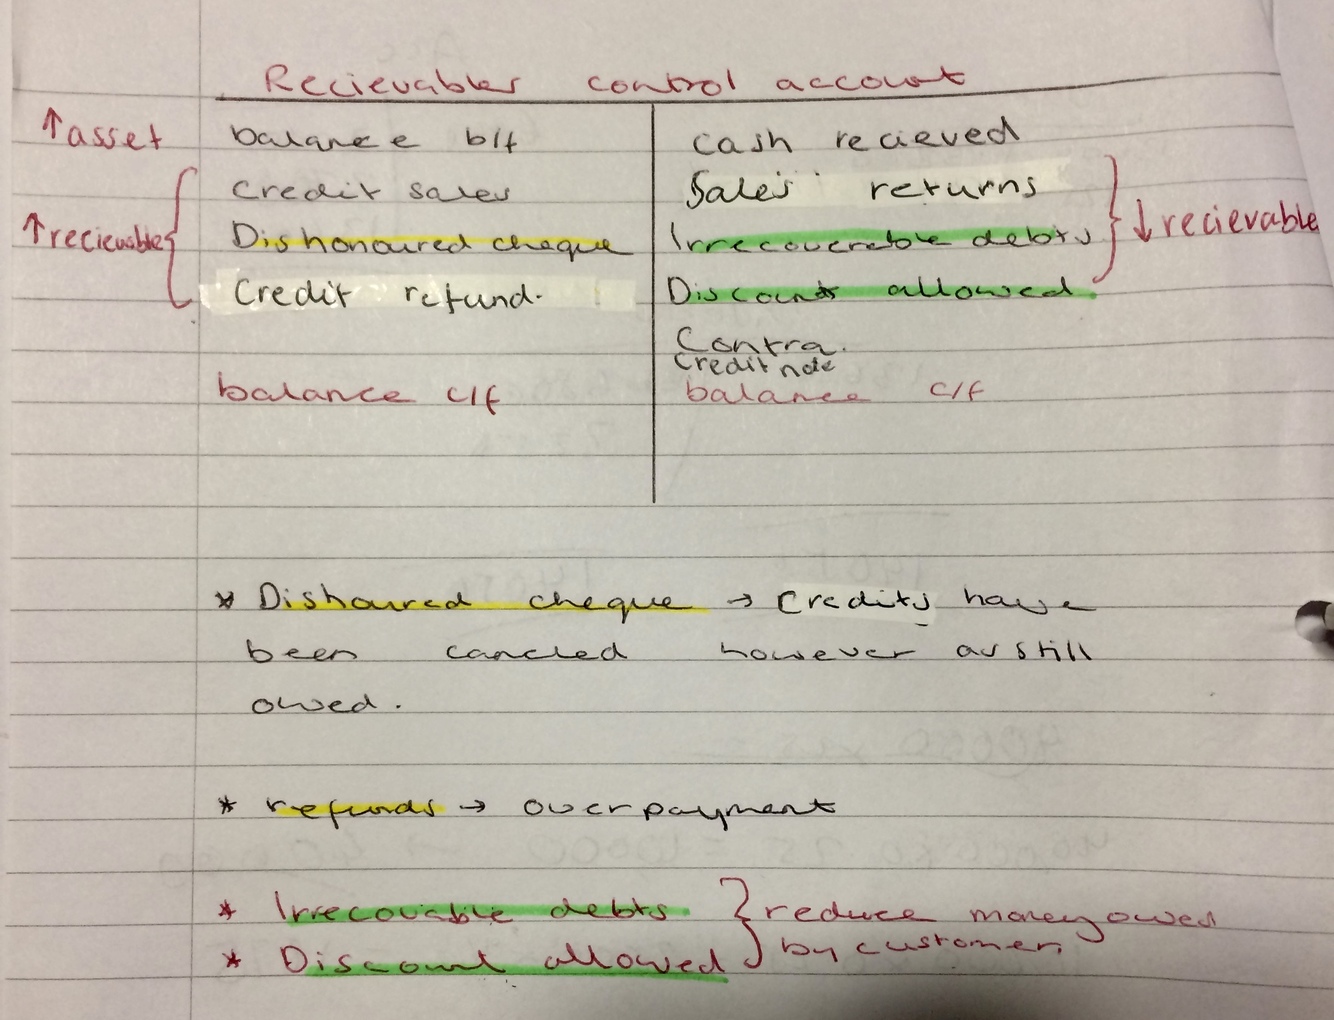 Recievables control account
↑ asset balance b/f cash recieved
Credit sales Sales returns
↑ recievable Dishonoured cheque Irrecoverable debts ↓ recievable
Credit refund. Discounts allowed.
Contra.
Credit note
balance c/f balance c/f
* Dishoured cheque → Credits have
been cancled however as still
owed.
* refunds → overpayment
* Irrecovable debts } reduce money owed
* Discount allowed by customer